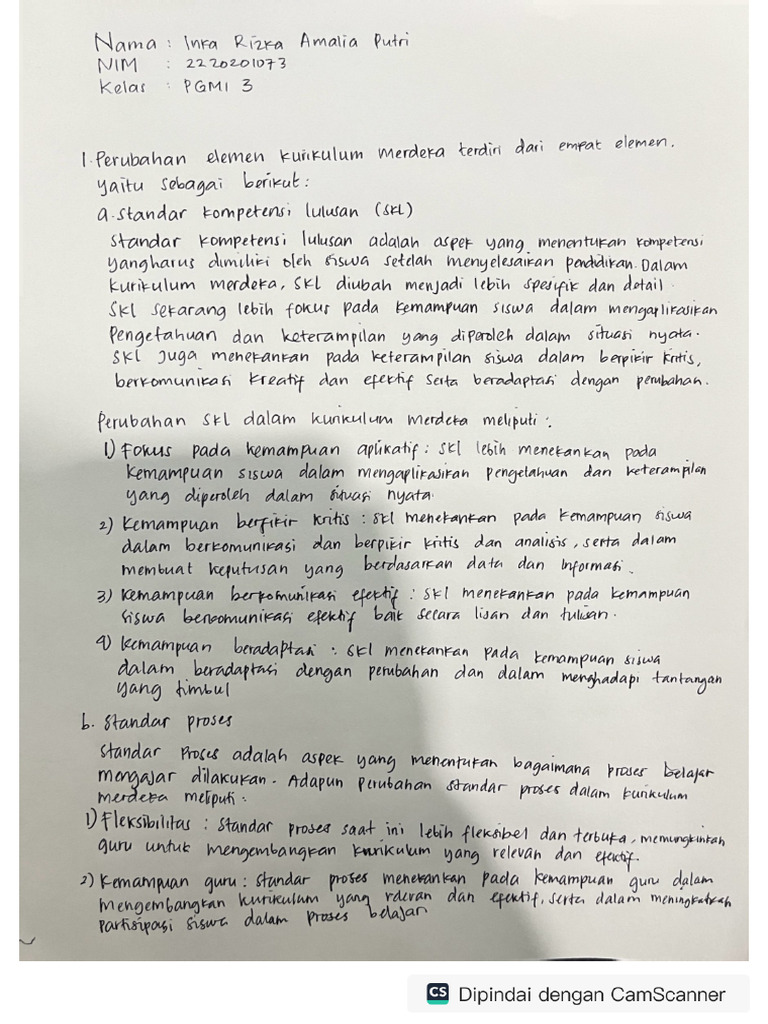 Nama : Inka Rizka Amalia Putri
NIM : 2220201073
Kelas : PGMI 3
1. Perubahan elemen kurikulum merdeka terdiri dari empat elemen.
yaitu sebagai berikut :
a. Standar kompetensi lulusan (SKL)
Standar kompetensi lulusan adalah aspek yang menentukan kompetensi
yang harus dimiliki oleh siswa setelah menyelesaikan pendidikan. Dalam
kurikulum merdeka, SKL diubah menjadi lebih spesifik dan detail.
SKL sekarang lebih fokus pada kemampuan siswa dalam mengaplikasikan
pengetahuan dan keterampilan yang diperoleh dalam situasi nyata.
SKL Juga menekankan pada keterampilan siswa dalam berpikir kritis,
berkomunikasi kreatif dan efektif serta beradaptasi dengan perubahan.
Perubahan SKL dalam kurikulum merdeka meliputi :
1) Fokus pada kemampuan aplikatif : SKL lebih menekankan pada
kemampuan siswa dalam mengaplikasikan pengetahuan dan keterampilan
yang diperoleh dalam situasi nyata.
2) Kemampuan berfikir kritis : SKL menekankan pada kemampuan siswa
dalam berkomunikasi dan berpikir kritis dan analisis, serta dalam
membuat keputusan yang berdasarkan data dan informasi.
3) Kemampuan berkomunikasi efektif : SKL menekankan pada kemampuan
siswa berkomunikasi efektif baik secara lisan dan tulisan.
4) Kemampuan beradaptasi : SKL menekankan pada kemampuan siswa
dalam beradaptasi dengan perubahan dan dalam menghadapi tantangan
yang timbul
b. Standar proses
Standar Proses adalah aspek yang menentukan bagaimana proses belajar
mengajar dilakukan. Adapun perubahan standar proses dalam kurikulum
merdeka meliputi :
1) Fleksibilitas : Standar proses saat ini lebih fleksibel dan terbuka, memungkinkan
guru untuk mengembangkan kurikulum yang relevan dan efektif.
2) Kemampuan guru : standar proses menekankan pada kemampuan guru dalam
mengembangkan kurikulum yang relevan dan efektif, serta dalam meningkatkan
partisipasi siswa dalam proses belajar
CS Dipindai dengan CamScanner